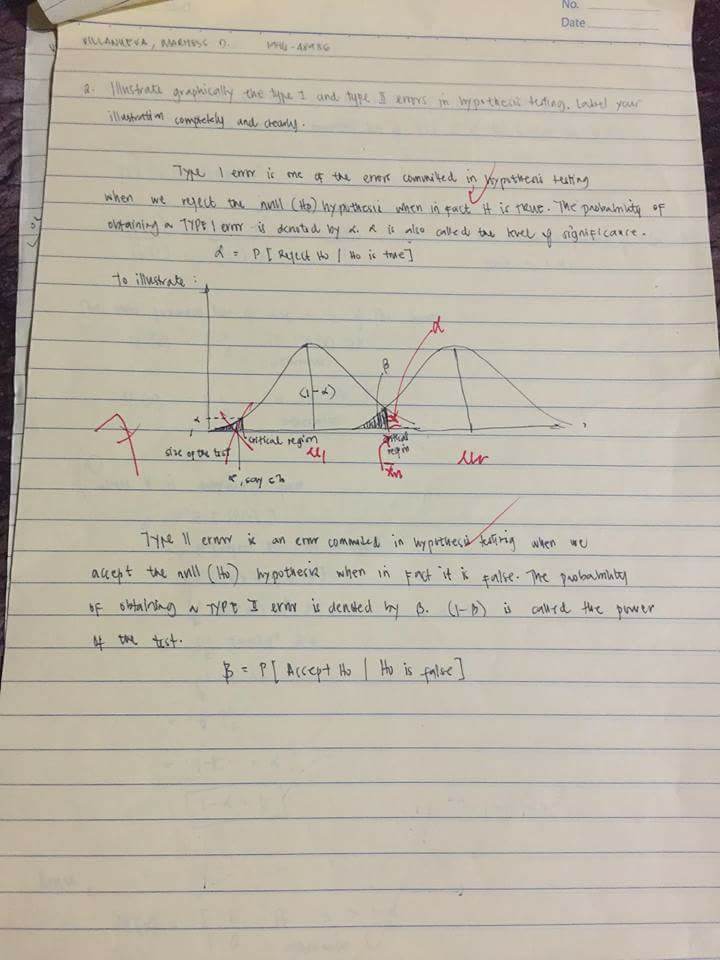 No.
Date
VILLANUEVA, MARNESS D.
2. Illustrate graphically the type I and type II errors in hypothesis testing. Label your
illustration completely and clearly.
Type I error is one of the errors committed in hypothesis testing
when we reject the null (Ho) hypothesis when in fact it is TRUE. The probability of
obtaining a TYPE I error is denoted by α. α is also called the level of significance.
α = P [ Reject Ho | Ho is true ]
To illustrate :
α
β
(1-α)
α
α
critical region
critical
region
size of the test
μ1
, say c
7
Type II error is an error committed in hypothesis testing when we
accept the null (Ho) hypothesis when in fact it is false. The probability
of obtaining a TYPE II error is denoted by β. (1-β) is called the power
of the test.
β = P [ Accept Ho | Ho is false ]